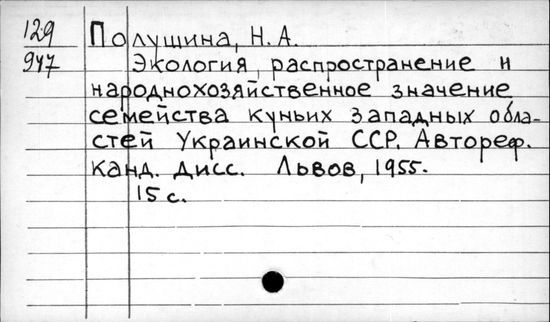 129
947
Полущина, Н. А.
Экология, распространение и
народнохозяйственное значение
семейства куньих западных обла-
стей Украинской ССР. Автореф.
канд. дисс. Львов, 1955.
15 с.